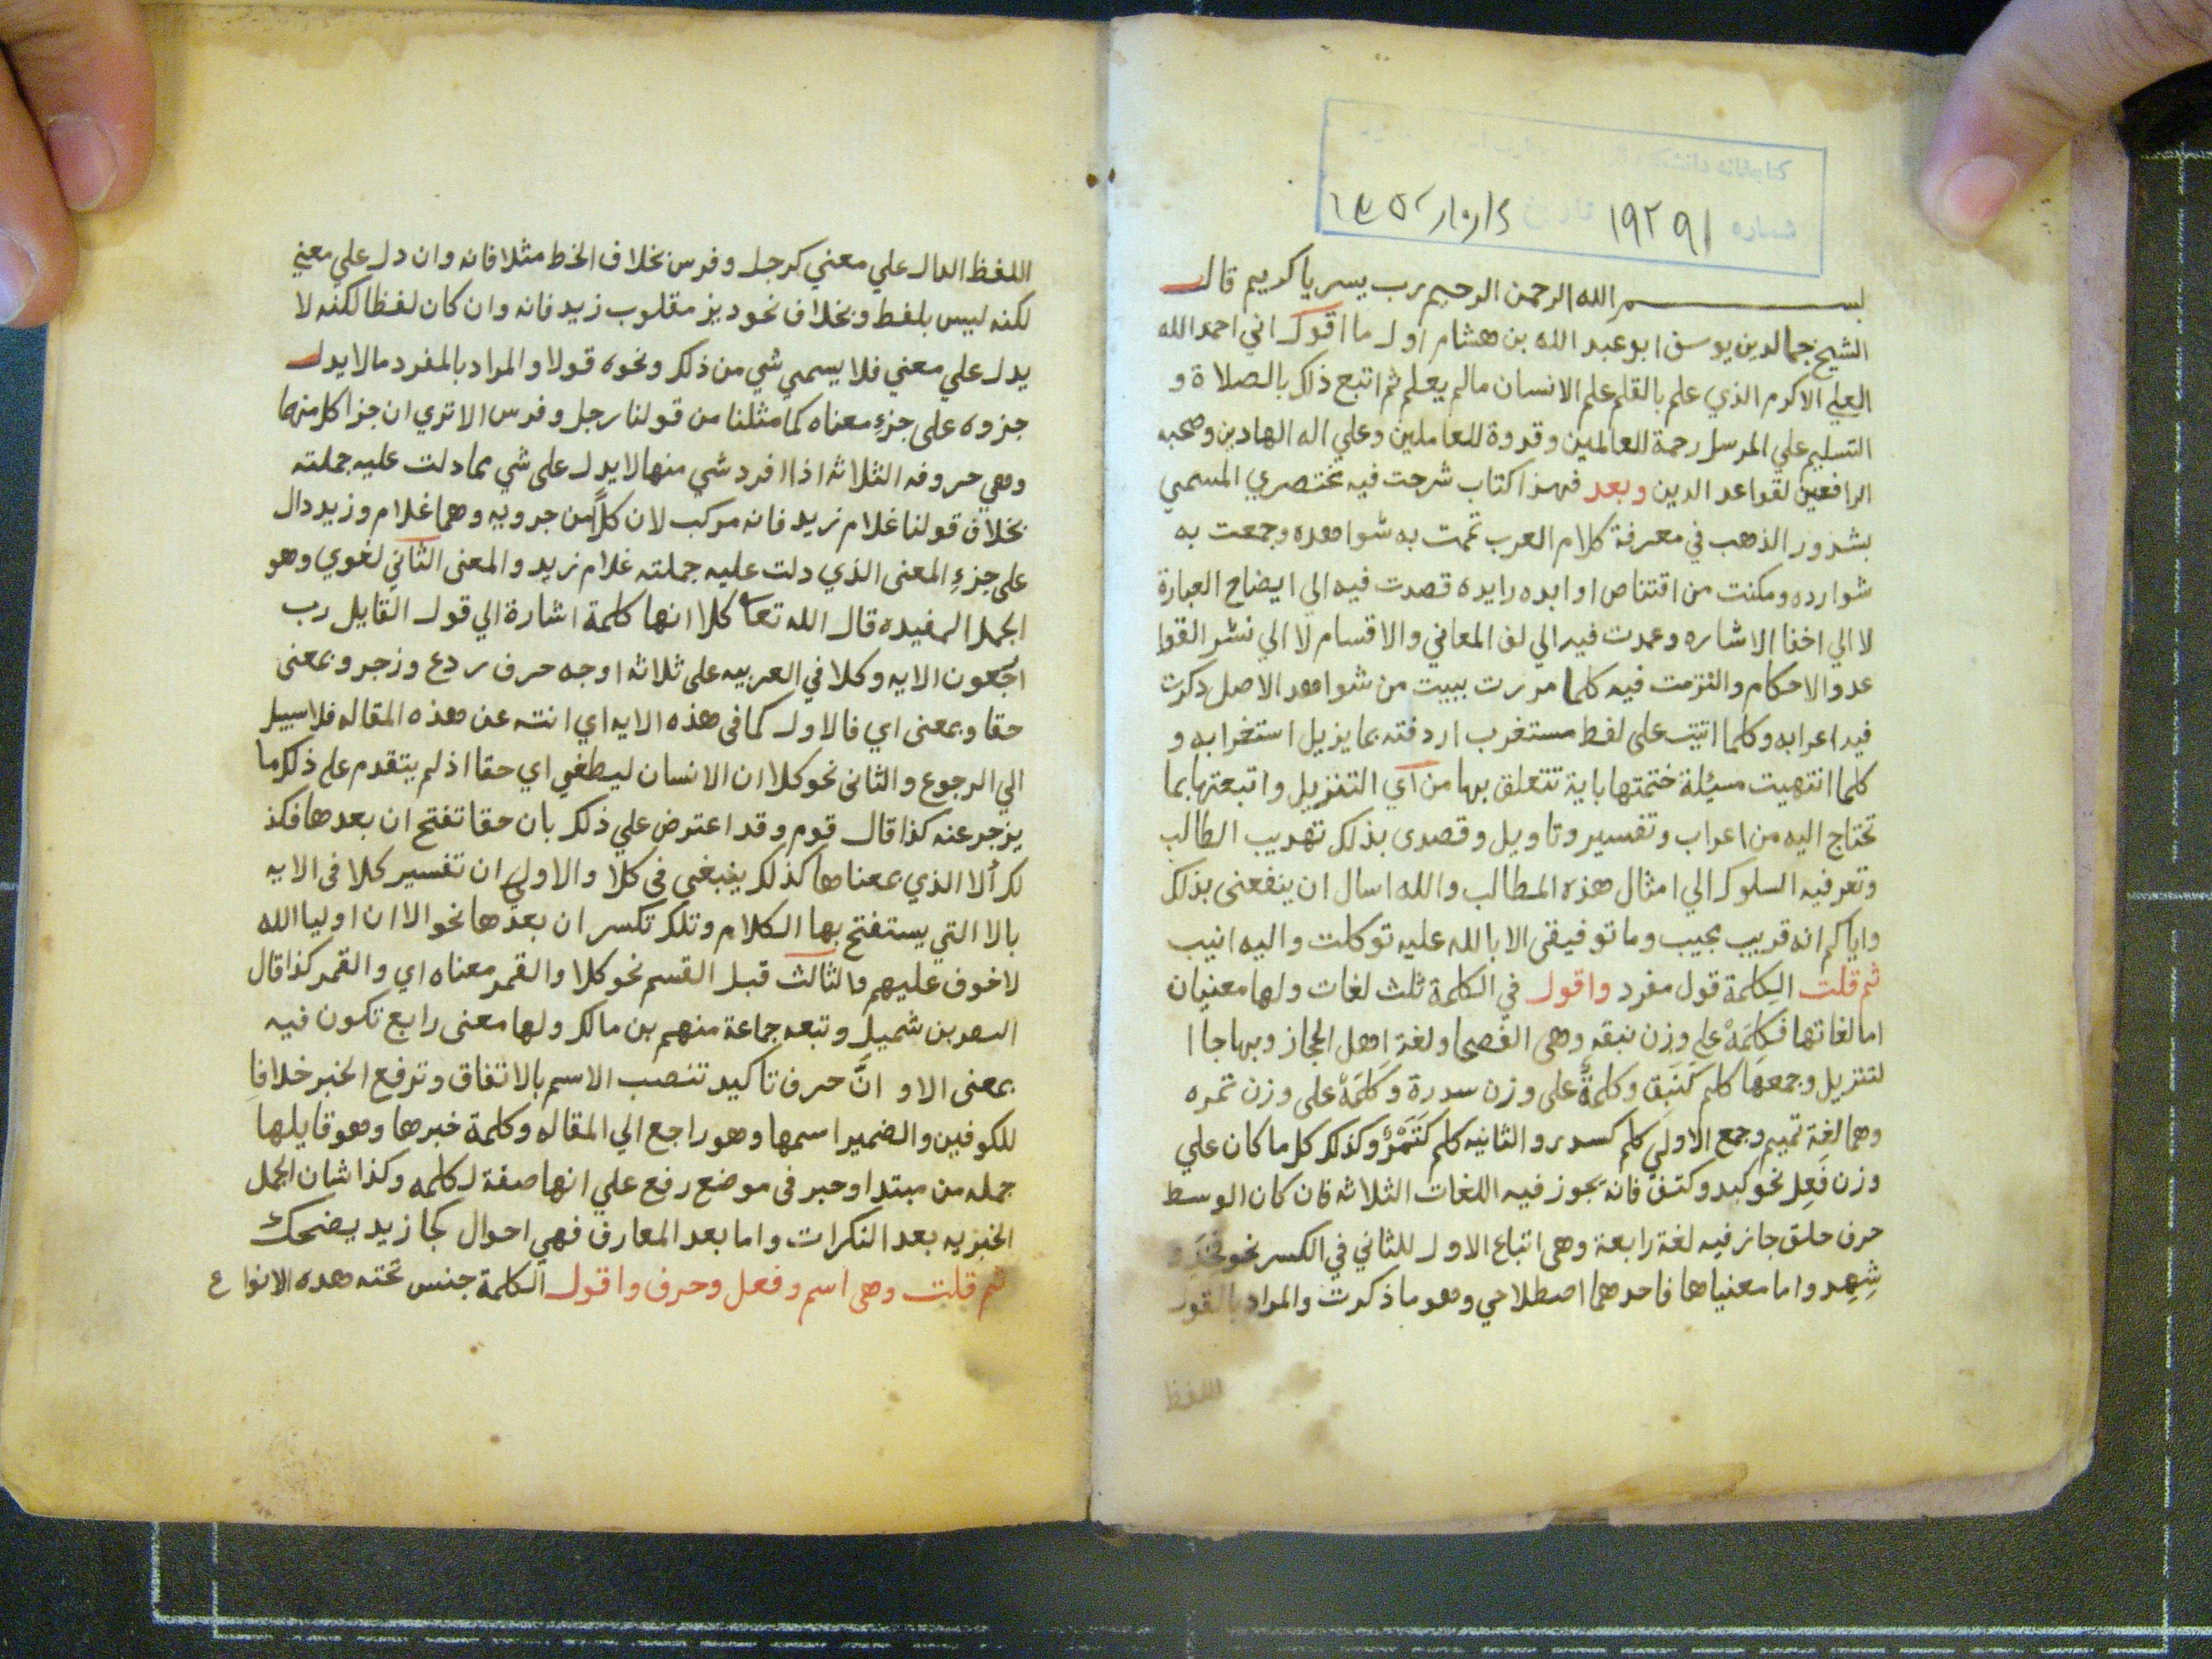 كتابخانه دانشكده
شماره ١٩٢٩١ تاريخ
بسم الله الرحمن الرحيم رب يسر يا كريم قال
الشيخ جمالدين يوسف ابو عبد الله بن هشام اول ما اقول اني احمد الله
العلي الاكرم الذي علم بالقلم علم الانسان مالم يعلم ثم اتبع ذلك بالصلاة و
التسليم علي المرسل رحمة للعالمين وقدوة للعاملين وعلي اله الهادين وصحبه
الرافعين لقواعد الدين وبعد فهذا كتاب شرحت فيه مختصري المسمي
بشذور الذهب في معرفة كلام العرب تممت به شواهده وجمعت به
شوارده ومكنت من اقتناص اوابده رايده قصدت فيه الي ايضاح العبارة
لا الي اخفا الاشاره وعمدت فيه الي لف المعاني والاقسام لا الي نشر القوا
عد والاحكام والتزمت فيه كلما مررت ببيت من شواهد الاصل ذكرت
فيه اعرابه وكلما اتيت على لفظ مستغرب اردفته بما يزيل استغرابه و
كلما انتهيت مسئلة ختمتها باية تتعلق بها من آي التنزيل واتبعتها بما
تحتاج اليه من اعراب وتفسير وتاويل وقصدى بذلك تهديب الطالب
وتعرفيه السلوك الي امثال هذه المطالب والله اسال ان ينفعنى بذلك
واياكم انه قريب مجيب وما توفيقى الا بالله عليه توكلت واليه انيب
ثم قلت الكلمة قول مفرد واقول في الكلمة ثلث لغات ولها معنيان
اما لغاتها فَكَلِمَهْ علي وزن نبقه وهى الفصحا ولغة اهل الحجاز وبها جا ا
لتنزيل وجمعها كلم كَنَبِق وكلمةٌ على وزن سدرة وكَلمَهْ على وزن تمره
وهما لغة تميم وجمع الاولي كلم كسدر والثانيه كلم كَتَمْرٌ وكذلك كل ما كان علي
وزن فَعِل نحو كبد وكتف فانه يجوز فيه اللغات الثلاثه فان كان الوسط
حرف حلق جاز فيه لغة رابعة وهى اتباع الاول للثاني في الكسر نحو فِخِذ و
شِهِد واما معنياها فاحدهما اصطلاحي وهو ما ذكرت والمراد بالقول
اللفظ
اللفظ الدال علي معني كرجل وفرس بخلاف الخط مثلا فانه وان دل علي معني
لكنه ليس بلفظ وبخلاف نحو ديز مقلوب زيد فانه وان كان لفظا لكنه لا
يدل علي معني فلا يسمي شي من ذلك ونحوه قولا والمراد بالمفرد مالا يدل
جزوه على جزءِ معناه كما مثلنا من قولنا رجل وفرس الا تري ان جزا كل منهما
وهي حروفه الثلاثه اذا افرد شي منها لا يدل على شي مما دلت عليه جملته
بخلاف قولنا غلام زيد فانه مركب لان كلاًّ من جرويه وهما غلام وزيد دال
على جزءِ المعنى الذي دلت عليه جملته غلام زيد والمعنى الثاني لغوي وهو
الجمل المفيده قال الله تعا كلا انها كلمة اشارة الي قول القايل رب
ارجعون الايه وكلا في العربيه على ثلاثه اوجه حرف ردع وزجر وبمعنى
حقا وبمعنى اي فالاول كما فى هذه الايه اي انته عن هذه المقاله فلا سبيل
الي الرجوع والثانى نحو كلا ان الانسان ليطغي اي حقا اذ لم يتقدم على ذلك ما
يزجر عنه كذا قال قوم وقد اعترض علي ذلك بان حقا تفتح ان بعدها فكذ
لك ألا الذي بمعناها كذلك ينبغي فى كلا والاولي ان تفسير كلا فى الايه
بالا التي يستفتح بها الكلام وتلك تكسر ان بعدها نحو الا ان اوليا الله
لا خوف عليهم والثالث قبل القسم نحو كلا والقمر معناه اي والقمر كذا قال
النضر بن شميل وتبعه جماعة منهم بن مالك ولها معنى رابع تكون فيه
بمعنى الا و انَّ حرف تاكيد تنصب الاسم بالاتفاق وترفع الخبر خلافا
للكوفين والضمير اسمها وهو راجع الي المقاله وكلمة خبرها وهو قايلها
جمله من مبتدا وخبر فى موضع رفع علي انها صفة لكلمه وكذا شان الجمل
الخبريه بعد النكرات واما بعد المعارف فهي احوال كجا زيد يضحك
ثم قلت وهى اسم وفعل وحرف واقول الكلمة جنس تحته هده الانواع